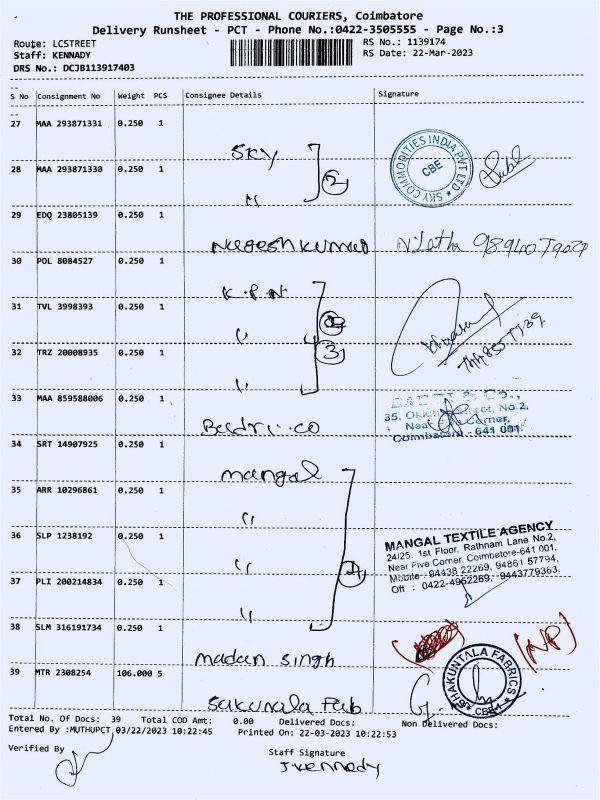 THE PROFESSIONAL COURIERS, Coimbatore
Delivery Runsheet - PCT - Phone No.:0422-3505555 - Page No.:3
Route: LCSTREET
RS No.: 1139174
Staff: KENNADY
RS Date: 22-Mar-2023
DRS No.: DCJB113917403
S No Consignment No Weight PCS Consignee Details Signature
27 MAA 293871331 0.250 1
SKY
28 MAA 293871330 0.250 1
"
2
SKY COMMODITIES INDIA PVT LTD
CBE
29 EDQ 23805139 0.250 1
Nageshkumar
30 POL 8084527 0.250 1
K.P.N
31 TVL 3998393 0.250 1
"
32 TRZ 20008935 0.250 1
"
3
33 MAA 859588006 0.250 1
Badri.co
BADRI & Co.,
No.2,
Coimbatore - 641 001.
34 SRT 14907925 0.250 1
mangal
35 ARR 10296861 0.250 1
"
36 SLP 1238192 0.250 1
"
37 PLI 200214834 0.250 1
"
4
MANGAL TEXTILE AGENCY
24/25, 1st Floor, Rathnam Lane No.2,
Near Five Corner, Coimbatore-641 001.
Mobile : 94438 22269, 94861 57794,
Off : 0422-4952269, 9443779363.
38 SLM 316191734 0.250 1
madan singh
(NP)
39 MTR 2308254 106.000 5
Sakunala Fab
SHAKUNTALA FABRICS
CBE-1
Total No. Of Docs: 39 Total COD Amt: 0.00 Delivered Docs: Non Delivered Docs:
Entered By :MUTHUPCT 03/22/2023 10:22:45 Printed On: 22-03-2023 10:22:53
Verified By
Staff Signature
J.Kennady